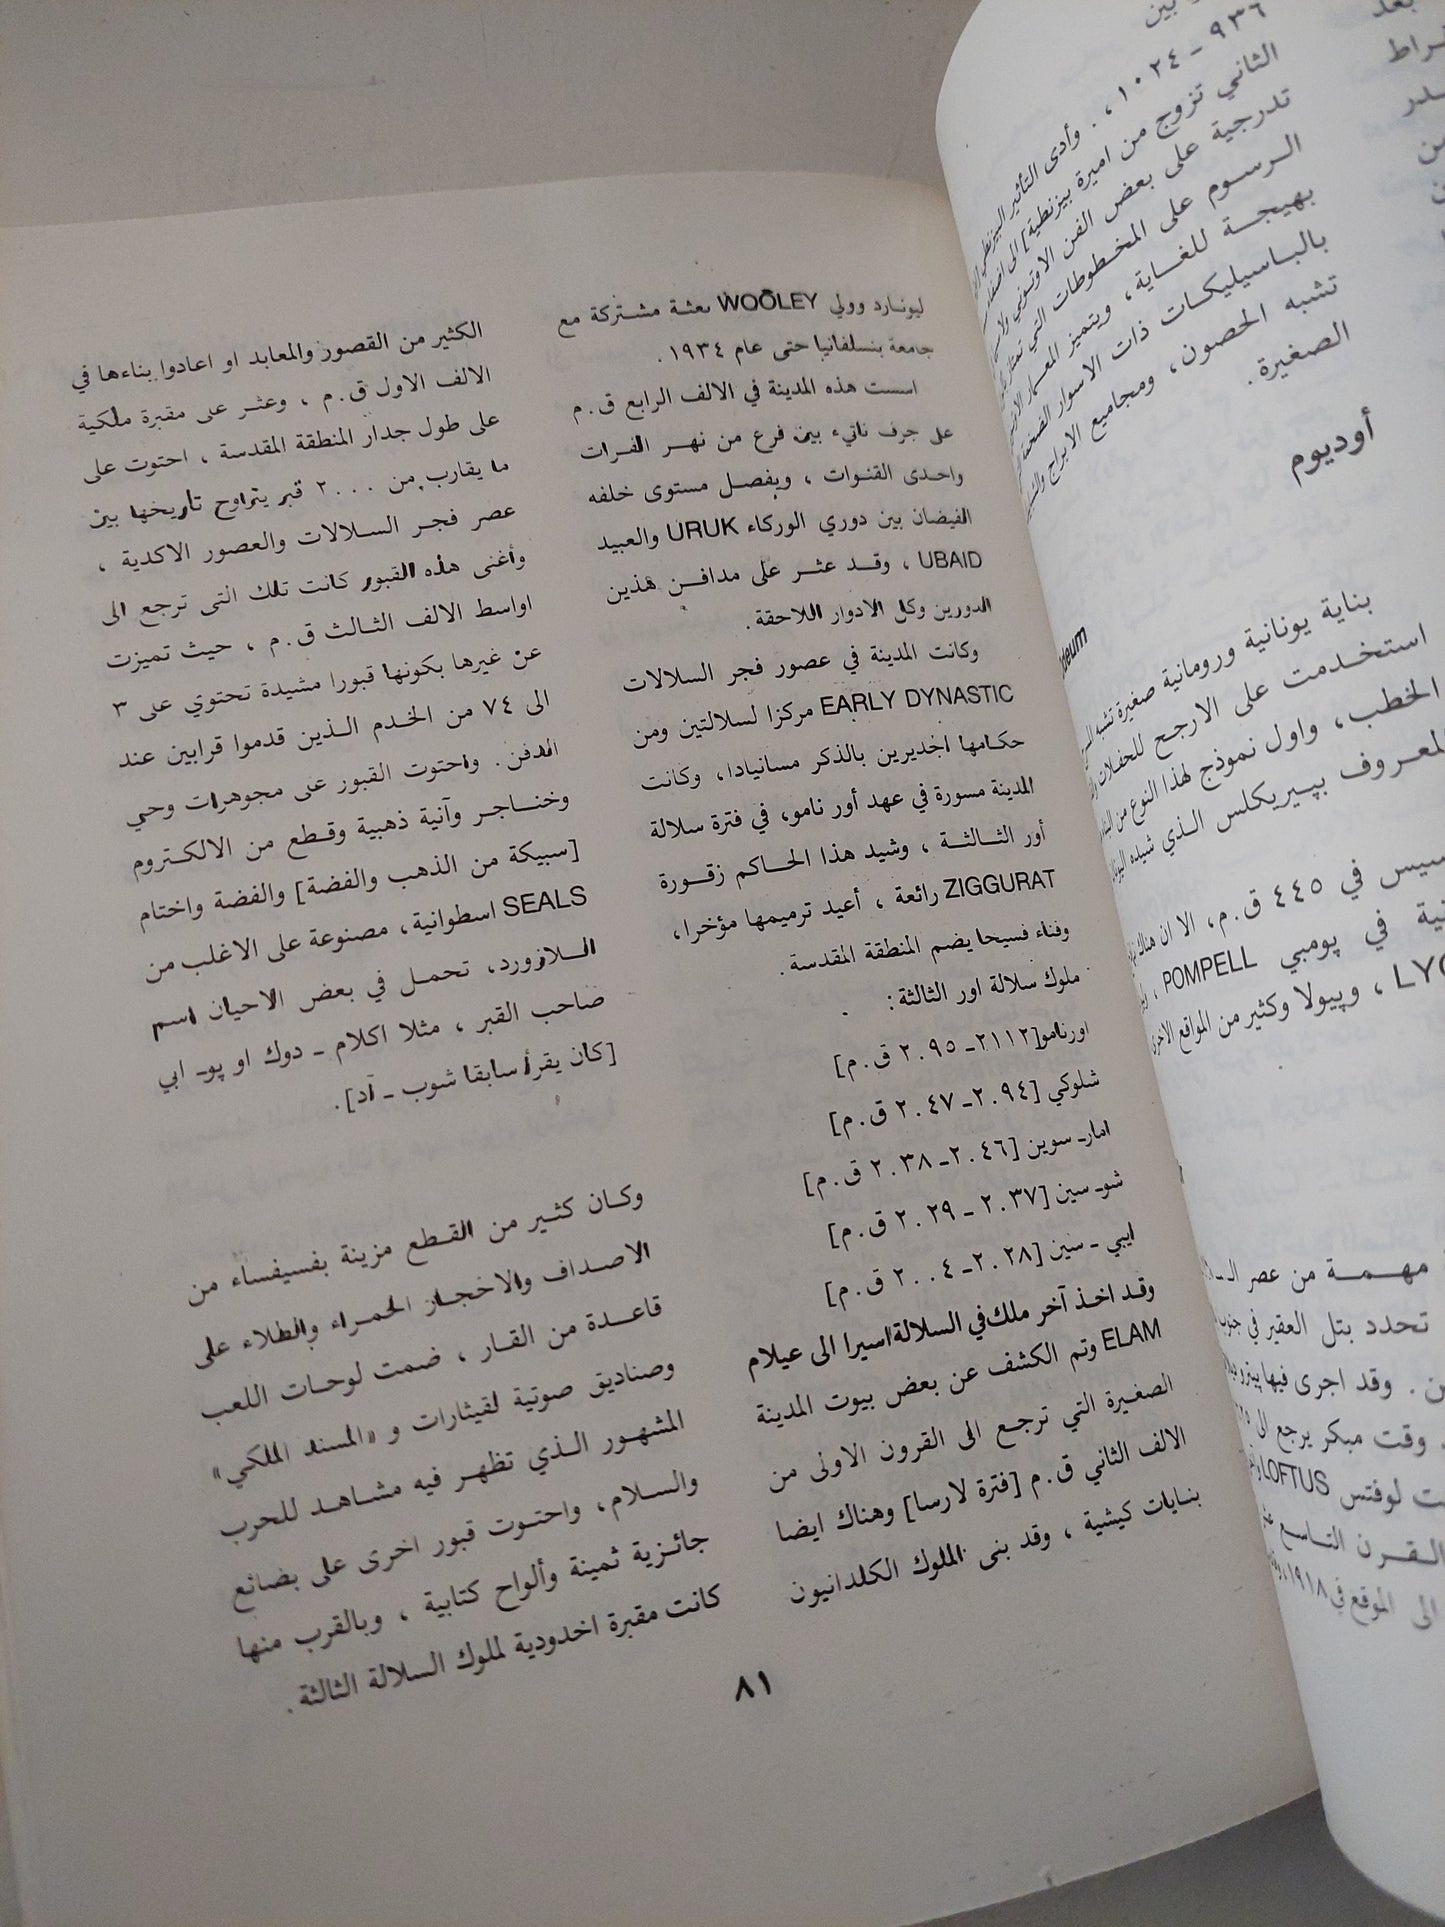 ليونارد وولي WOOLEY بعثة مشتركة مع
جامعة بنسلفانيا حتى عام ١٩٣٤ .
اسست هذه المدينة في الالف الرابع ق.م
على جرف ناتيء بين فرع من نهر الفرات
واحدى القنوات ، ويفصل مستوى خلفه
الفيضان بين دوري الوركاء URUK والعبيد
UBAID ، وقد عثر على مدافن هذين
الدورين وكل الادوار اللاحقة .
وكانت المدينة في عصور فجر السلالات
EARLY DYNASTIC مركزا لسلالتين ومن
حكامها الجديرين بالذكر مسانيادا، وكانت
المدينة مسورة في عهد أور نامو، في فترة سلالة
أور الثالثة ، وشيد هذا الحاكم زقورة
ZIGGURAT رائعة ، أعيد ترميمها مؤخرا،
وفناء فسيحا يضم المنطقة المقدسة .
ملوك سلالة اور الثالثة :
اورنامو[٢١١٢ـ ٢٠٩٥ ق.م]
شلوكي [٢٠٩٤ـ ٢٠٤٧ ق.م]
امارـ سوين [٢٠٤٦ـ ٢٠٣٨ ق.م]
شوـ سين [٢٠٣٧ ـ ٢٠٢٩ ق.م]
ايبي ـ سين [٢٠٢٨ـ ٢٠٠٤ ق.م]
وقد اخذ آخر ملك في السلالة اسيرا الى عيلام
ELAM وتم الكشف عن بعض بيوت المدينة
الصغيرة التي ترجع الى القرون الاولى من
الالف الثاني ق.م [فترة لارسا] وهناك ايضا
بنايات كيشية ، وقد بنى الملوك الكلدانيون
الكثير من القصور والمعابد او اعادوا بناءها في
الالف الاول ق.م ، وعثر على مقبرة ملكية
على طول جدار المنطقة المقدسة ، احتوت على
ما يقارب من ٢٠٠٠ قبر يتراوح تاريخها بين
عصر فجر السلالات والعصور الاكدية ،
وأغنى هذه القبور كانت تلك التي ترجع الى
اواسط الالف الثالث ق.م ، حيث تميزت
عن غيرها بكونها قبورا مشيدة تحتوي على ٣
الى ٧٤ من الخدم الذين قدموا قرابين عند
الدفن . واحتوت القبور على مجوهرات وحي
وخناجر وآنية ذهبية وقطع من الالكتروم
[سبيكة من الذهب والفضة] والفضة واختام
SEALS اسطوانية، مصنوعة على الاغلب من
اللازورد، تحمل في بعض الاحيان اسم
صاحب القبر ، مثلا اكلام ـ دوك او پوـ ابي
[كان يقرأ سابقا شوب ـ آد].
وكان كثير من القطع مزينة بفسيفساء من
الاصداف والاحجار الحمراء والطلاء على
قاعدة من القار ، ضمت لوحات اللعب
وصناديق صوتية لقيثارات و «المسند الملكي»
المشهور الذي تظهر فيه مشاهد للحرب
والسلام، واحتوت قبور اخرى على بضائع
جائزية ثمينة وألواح كتابية ، وبالقرب منها
كانت مقبرة اخدودية لملوك السلالة الثالثة .
٨١
بين
٩٣٦ ـ ١٠٢٤ ، . وأدى التأثير البيزنطي
الثاني تزوج من اميرة بيزنطية] الى
تدرجية على بعض الفن الاوتوني
الرسوم على المخطوطات التي
بهيجة للغاية، ويتميز المعمار
بالباسيليكات ذات الاسوار الضخمة
تشبه الحصون، ومجاميع الابراج
الصغيرة .
أوديوم
بناية يونانية ورومانية صغيرة تشبه
استخدمت على الارجح للحفلات
الخطب، واول نموذج لهذا النوع من
المعروف بپيريكلس الذي شيده
في ٤٤٥ ق.م، الا ان هناك
في پومبي POMPELL ،
، وپيولا وكثير من المواقع الاخرى
مهمة من عصر الـ
تحدد بتل العقير في
. وقد اجرى فيها
وقت مبكر يرجع الى
لوفتس LOFTUS
القرن التاسع
الى الموقع في ١٩١٨،